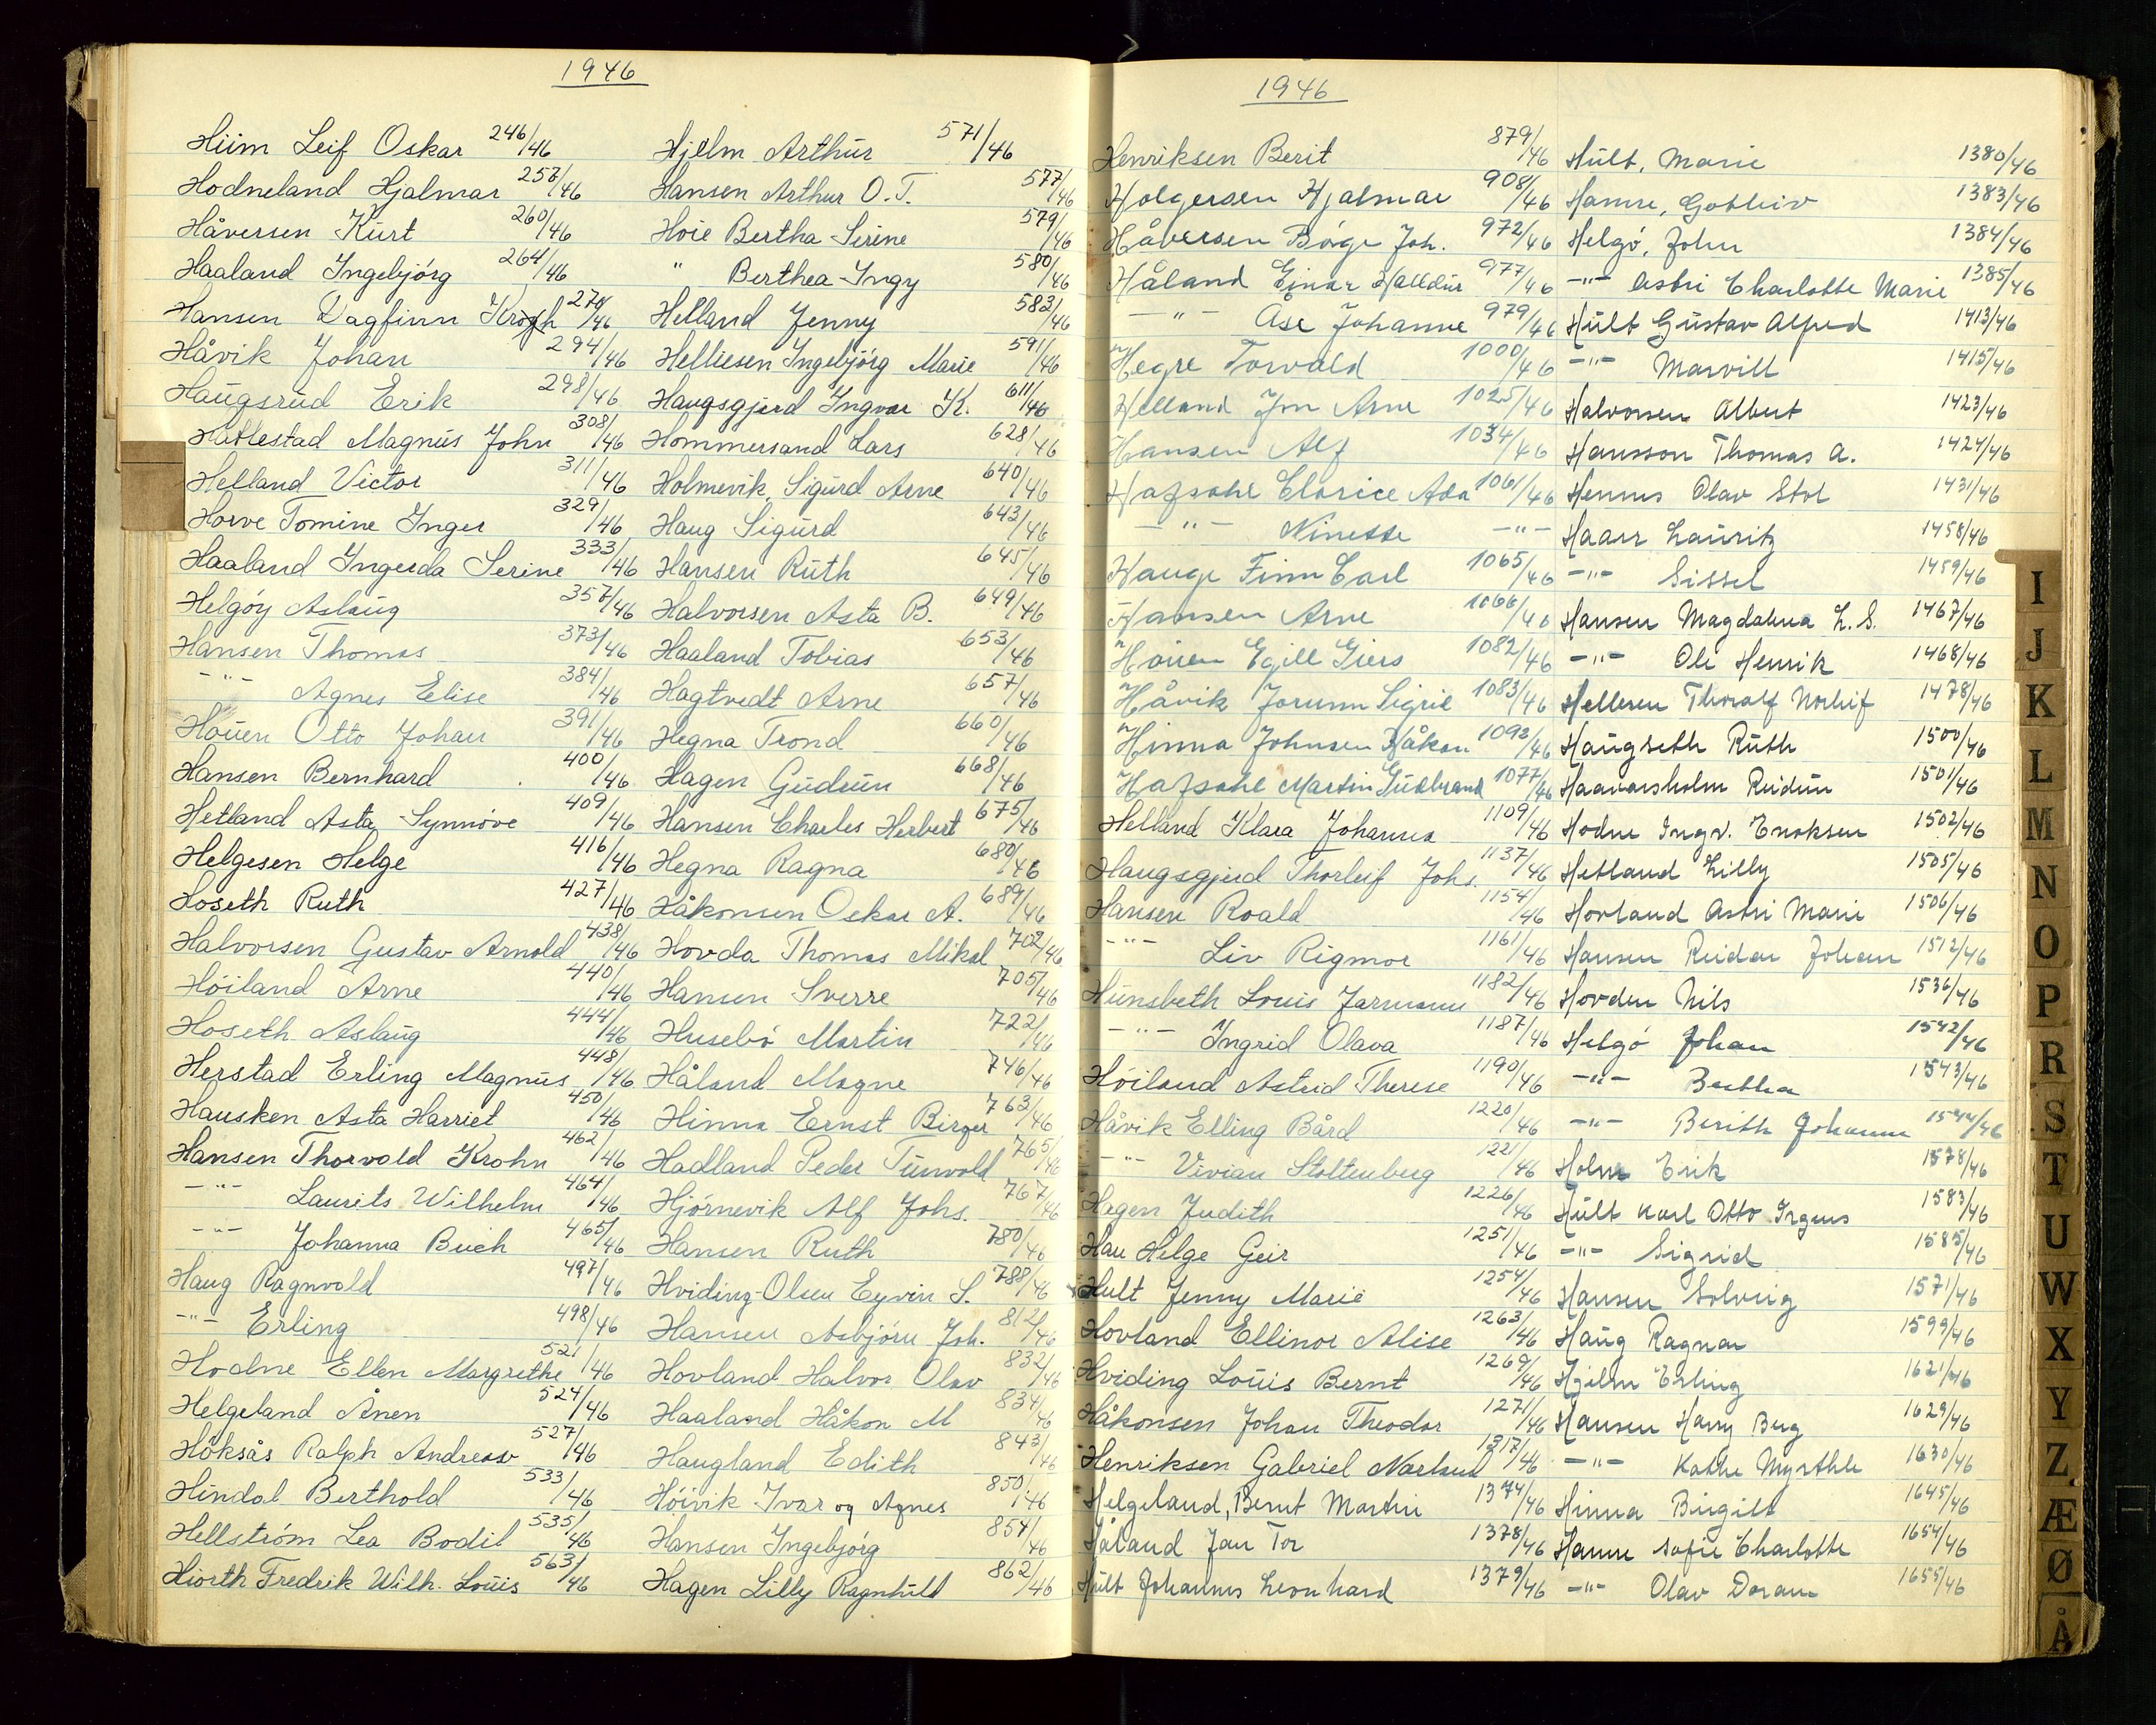 1946
Hiim Leif Oskar 246/46
Hodneland Hjalmar 258/46
Håversen Kurt 260/46
Haaland Ingebjörg 264/46
Hansen Dagfinn Krogh 270/46
Håvik Johan 294/46
Haugsrud Erik 298/46
Hattestad Magnus John 308/46
Helland Victor 311/46
Horve Tomine Inger 329/46
Haaland Ingerda Serine 333/46
Helgöy Aslaug 357/46
Hansen Thomas 373/46
-"- Agnes Elise 384/46
Houen Otto Johan 391/46
Hansen Bernhard 400/46
Hetland Asta Synnöve 409/46
Helgesen Helge 416/46
Hoseth Ruth 427/46
Halvorsen Gustav Arnold 438/46
Höiland Arne 440/46
Hoseth Aslaug 444/46
Herstad Erling Magnus 448/46
Hausken Asta Harriet 450/46
Hansen Thorvald Krohn 462/46
-"- Laurits Wilhelm 464/46
-"- Johanna Buch 465/46
Haug Ragnvald 497/46
-"- Erling 498/46
Hodne Ellen Margrethe 521/46
Helgeland Ånen 524/46
Höksås Ralph Andreas 527/46
Hindal Berthold 533/46
Hellström Lea Bodil 535/46
Hiorth Fredrik Wilh. Louis 563/46
Hjelm Arthur 571/46
Hansen Arthur O.T. 577/46
Höie Bertha Serine 579/46
" Berthea Ingy 580/46
Helland Jenny 583/46
Helliesen Ingebjörg Marie 591/46
Haugsgjerd Ingvar K. 611/46
Hommersand Lars 628/46
Holmevik, Sigurd Arne 640/46
Haug Sigurd 643/46
Hansen Ruth 645/46
Halvorsen Asta B. 649/46
Haaland Tobias 653/46
Hagtvedt Arne 657/46
Hegna Trond 660/46
Hagen Gudrun 668/46
Hansen Charles Herbert 675/46
Hegna Ragna 680/46
Håkonsen Oskar A. 689/46
Hovda Thomas Mikal 702/46
Hansen Sverre 705/46
Husebö Martin 722/46
Håland Magne 746/46
Hinna Ernst Birger 763/46
Hadland Peder Tunvold 765/46
Hjörnevik Alf Johs. 767/46
Hansen Ruth 780/46
Hviding-Olsen Eyvin S. 788/46
Hansen Asbjörn Joh. 812/46
Hovland Halvor Olav 832/46
Haaland Håkon M 834/46
Haugland Edith 843/46
Höivik Ivar og Agnes 850/46
Hansen Ingebjörg 854/46
Hagen Lilly Ragnhild 862/46
1946
Henriksen Berit 879/46
Holgersen Hjalmar 908/46
Håversen Börge Joh. 972/46
Håland Einar Halldur 977/46
-"- Åse Johanne 979/46
Hegre Torvald 1000/46
Helland Jon Arne 1025/46
Hansen Alf 1034/46
Hafsahl Clarice Ada 1061/46
-"- Ninette -"-
Hauge Finn Carl 1065/46
Hansen Arne 1066/46
Houen Egill Giers 1082/46
Håvik Jorunn Sigrid 1083/46
Hinna Johnsen Håkon 1092/46
Hafsahl Martin Gudbrand 1077/46
Helland Klara Johanna 1109/46
Haugsgjerd Thorleif Johs. 1137/46
Hansen Roald 1154/46
-"- Liv Rigmor 1161/46
Hunsbeth Louis Jarmann 1182/46
-"- Ingrid Olava 1187/46
Höiland Astrid Therese 1190/46
Håvik Elling Bård 1220/46
-"- Vivian Stoltenberg 1221/46
Hagen Judith 1226/46
Hau Helge Geir 1251/46
Hult Jenny Marie 1254/46
Hovland Ellinor Alise 1263/46
Hviding Louis Bernt 1269/46
Håkonsen Johan Theodor 1271/46
Henriksen Gabriel 1317/46
Helgeland, Bernt Martin 1374/46
Håland Jan Tor 1378/46
Hult Johannes Leonhard 1379/46
Hult, Marie 1380/46
Hamre, Gotleiv 1383/46
Helgö, John 1384/46
-"- Astri Charlotte Marie 1385/46
Hult Gustav Alfred 1413/46
-"- Marvill 1415/46
Halvorsen Albert 1423/46
Hansson Thomas A. 1424/46
Hennes Olav Stol 1431/46
Haarr Lauritz 1458/46
-"- Sissel 1459/46
Hansen Magdalena L.S. 1467/46
-"- Ole Henrik 1468/46
Helleren Thoralf Norleif 1478/46
Haugseth Ruth 1500/46
Haavarsholm Reidun 1501/46
Hodne Ingv. Enoksen 1502/46
Hetland Lilly 1505/46
Hovland Astri Marie 1506/46
Hansen Reidar Johan 1512/46
Hovden Nils 1536/46
Helgö Johan 1542/46
-"- Bertha 1543/46
-"- Berith Johanne 1544/46
Holm Erik 1578/46
Hult Karl Otto 1583/46
-"- Sigrid 1585/46
Hansen Solveig 1571/46
Haug Ragnar 1599/46
Hjelm Erling 1621/46
Hansen Harry Berg 1629/46
-"- Kathe Myrthle 1630/46
Hinna Birgitt 1645/46
Hamre Sofie Charlotte 1654/46
-"- Olav Doram 1655/46
I
J
K
L
M
N
O
P
R
S
T
U
W
X
Y
Z
Æ
Ø
Å